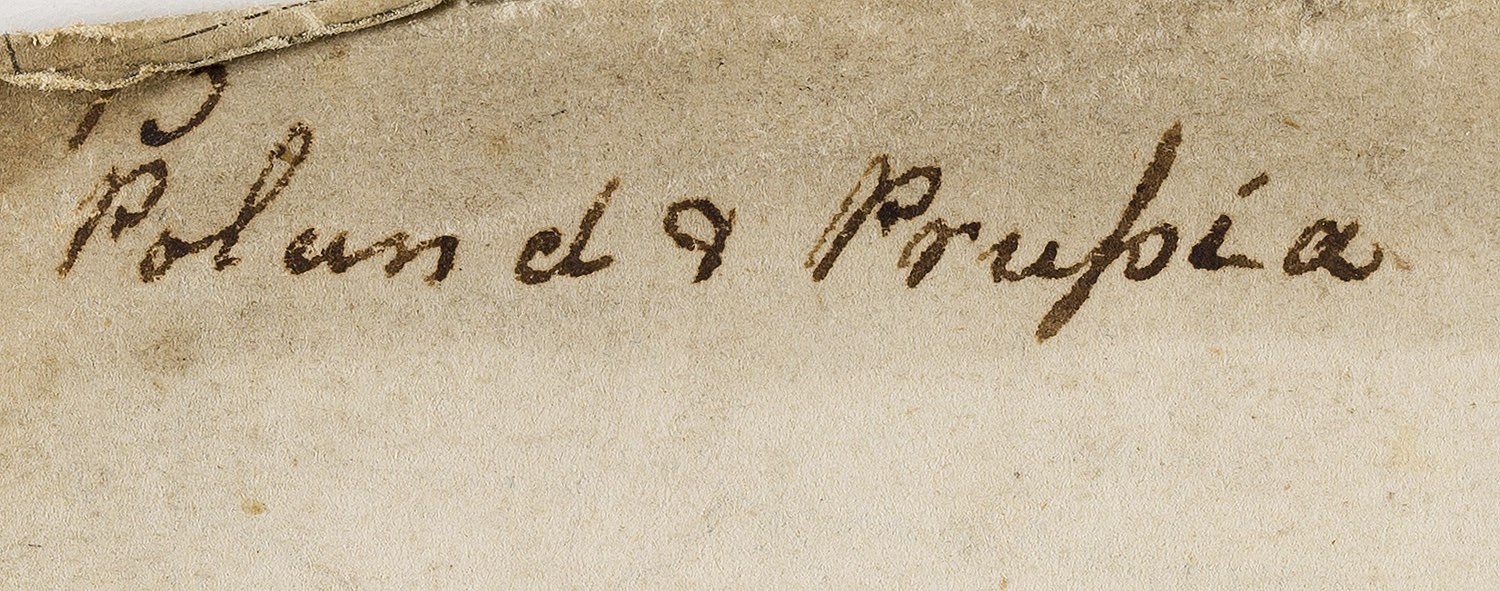 Poland & Prußia